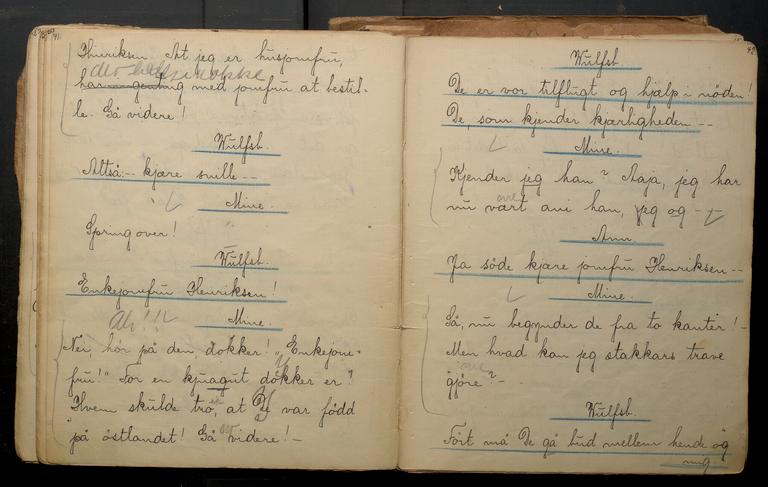 41.
Henriksen. At jeg er husjomfru,
det har ikke
har ingenting med jomfru at bestil-
le. Gå videre!
Wulfsb.
Altså:- kjære snille --
Mine.
Spring over!
Wulfsb.
Enkejomfru Henriksen!
Ah!!!
Mine.
Nei, hør på den, dokker! "Enkejom-
fru!" For en kjnagut dokker er!
Hvem skulde tro, at De var född
på östlandet! Gå videre! -
42.
Wulfsb.
De er vor tilflugt og hjælp i nöden!
De, som kjender kjærligheden --
Mine.
Kjender jeg han? Aaja, jeg har
nu vært ani han, jeg og --
Ann.
Ja söde kjære jomfru Henriksen --
Mine.
Så, nu begynder de fra to kanter! -
Men hvad kan jeg stakkars trave
gjöre? -
Wulfsb.
Först må De gå bud mellem hende og
mig